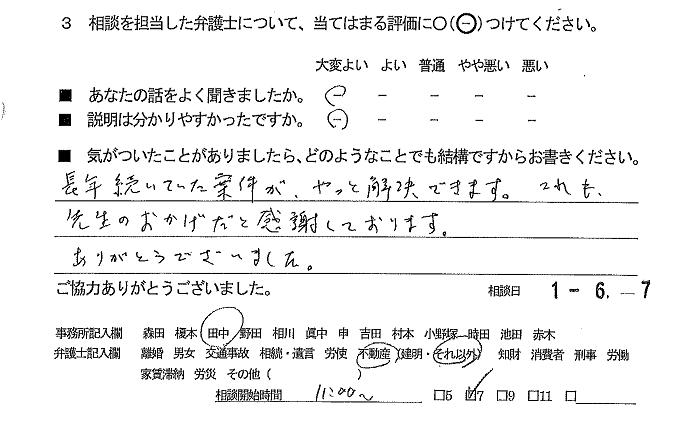 3 相談を担当した弁護士について、当てはまる評価に○(㊀)つけてください。
大変よい よい 普通 やや悪い 悪い
■ あなたの話をよく聞きましたか。 － － － － －
■ 説明は分かりやすかったですか。 － － － － －
■ 気がついたことがありましたら、どのようなことでも結構ですからお書きください。
長年続いていた案件が、やっと解決できます。これも、
先生のおかげだと感謝しております。
ありがとうございました。
ご協力ありがとうございました。 相談日 1-6.-7
事務所記入欄 森田 榎本 田中 野田 相川 眞中 申 吉田 村本 小野塚 時田 池田 赤木
弁護士記入欄 離婚 男女 交通事故 相続・遺言 労使 不動産(建明・それ以外) 知財 消費者 刑事 労働
家賃滞納 労災 その他( )
相談開始時間 11:00～ □5 ☑7 □9 □11 □